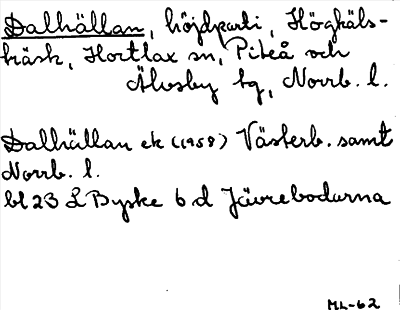 Dalhällan, höjdparti, Höghäls-
träsk, Hortlax sn, Piteå och
Älvsby tg, Norrb. l.
Dalhällan ek (1958) Västerb. samt
Norrb. l.
bl 23 L Byske 6 d Jävrebodarna
ML-62